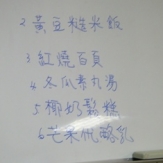 2 黃豆糙米飯
3 紅燒百頁
4 冬瓜素丸湯
5 椰奶鬆糕
6 芒果優酪乳